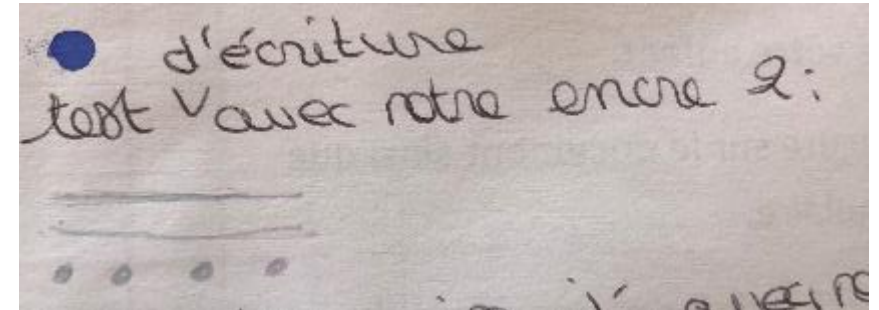 d'écriture
test avec notre encre 2: